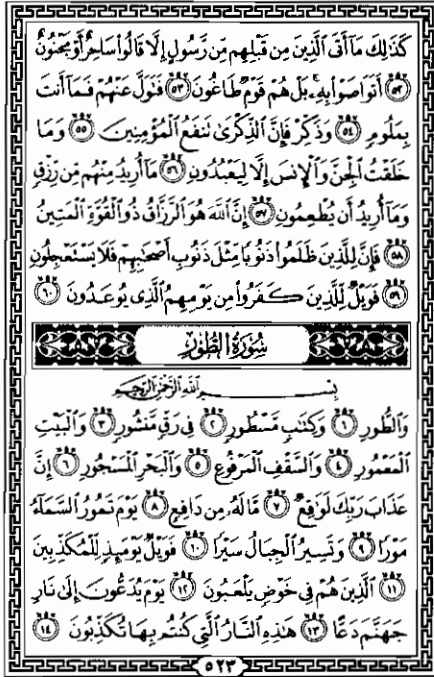 كَذَٰلِكَ مَآ أَتَى ٱلَّذِينَ مِن قَبْلِهِم مِّن رَّسُولٍ إِلَّا قَالُوا۟ سَاحِرٌ أَوْ مَجْنُونٌ
﴿٥٢﴾ أَتَوَاصَوْا۟ بِهِۦ ۚ بَلْ هُمْ قَوْمٌ طَاغُونَ ﴿٥٣﴾ فَتَوَلَّ عَنْهُمْ فَمَآ أَنتَ
بِمَلُومٍ ﴿٥٤﴾ وَذَكِّرْ فَإِنَّ ٱلذِّكْرَىٰ تَنفَعُ ٱلْمُؤْمِنِينَ ﴿٥٥﴾ وَمَا
خَلَقْتُ ٱلْجِنَّ وَٱلْإِنسَ إِلَّا لِيَعْبُدُونِ ﴿٥٦﴾ مَآ أُرِيدُ مِنْهُم مِّن رِّزْقٍ
وَمَآ أُرِيدُ أَن يُطْعِمُونِ ﴿٥٧﴾ إِنَّ ٱللَّهَ هُوَ ٱلرَّزَّاقُ ذُو ٱلْقُوَّةِ ٱلْمَتِينُ
﴿٥٨﴾ فَإِنَّ لِلَّذِينَ ظَلَمُوا۟ ذَنُوبًا مِّثْلَ ذَنُوبِ أَصْحَٰبِهِمْ فَلَا يَسْتَعْجِلُونِ
﴿٥٩﴾ فَوَيْلٌ لِّلَّذِينَ كَفَرُوا۟ مِن يَوْمِهِمُ ٱلَّذِى يُوعَدُونَ ﴿٦٠﴾
سُورَةُ الطُّورِ
بِسْمِ ٱللَّهِ ٱلرَّحْمَٰنِ ٱلرَّحِيمِ
وَٱلطُّورِ ﴿١﴾ وَكِتَٰبٍ مَّسْطُورٍ ﴿٢﴾ فِى رَقٍّ مَّنشُورٍ ﴿٣﴾ وَٱلْبَيْتِ
ٱلْمَعْمُورِ ﴿٤﴾ وَٱلسَّقْفِ ٱلْمَرْفُوعِ ﴿٥﴾ وَٱلْبَحْرِ ٱلْمَسْجُورِ ﴿٦﴾ إِنَّ
عَذَابَ رَبِّكَ لَوَٰقِعٌ ﴿٧﴾ مَّا لَهُۥ مِن دَافِعٍ ﴿٨﴾ يَوْمَ تَمُورُ ٱلسَّمَآءُ
مَوْرًا ﴿٩﴾ وَتَسِيرُ ٱلْجِبَالُ سَيْرًا ﴿١٠﴾ فَوَيْلٌ يَوْمَئِذٍ لِّلْمُكَذِّبِينَ
﴿١١﴾ ٱلَّذِينَ هُمْ فِى خَوْضٍ يَلْعَبُونَ ﴿١٢﴾ يَوْمَ يُدَعُّونَ إِلَىٰ نَارِ
جَهَنَّمَ دَعًّا ﴿١٣﴾ هَٰذِهِ ٱلنَّارُ ٱلَّتِى كُنتُم بِهَا تُكَذِّبُونَ ﴿١٤﴾
٥٢٣